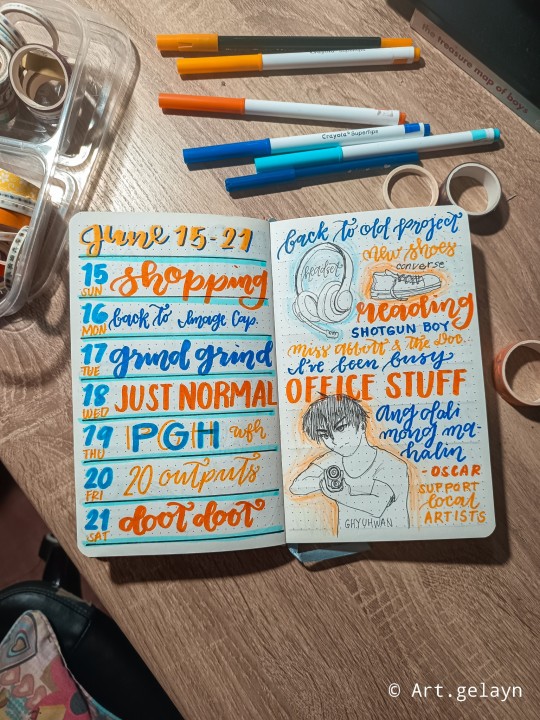 the treasure map of boys
Crayola Supertips
June 15-21
15 SUN shopping
16 MON back to Image Cap.
17 TUE grind grind
18 WED JUST NORMAL
19 THU PGH wfh
20 FRI 20 outputs
21 SAT doot doot
back to old project
headset
new shoes
converse
reading
SHOTGUN BOY
Miss Abbott & the Doc.
I've been busy
OFFICE STUFF
Ang dali
mong ma-
halin
- OSCAR
SUPPORT
local
ARTISTS
GHYUHWAN
© Art.gelayn